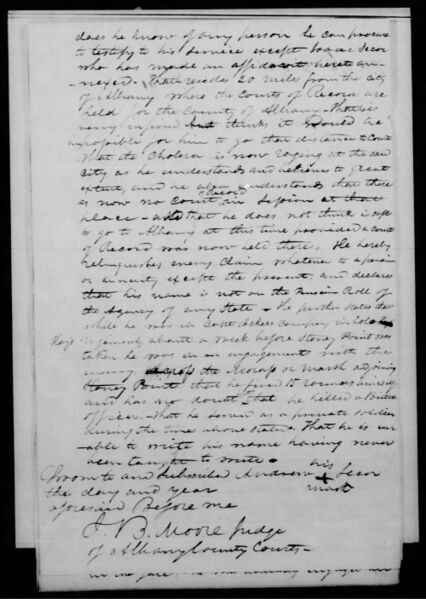 does he know of any person he can procure
to testify to his service except Isaac Secor
who has made an affidavit hereto an-
nexed - That resides 20 miles from the city
of Albany where the Courts of Record are
held for the County of Albany - That is
very infirm but thinks it would be
impossible for him to go that distance to Court
That the Cholera is now raging at the said
City as he understands and believes to great
extent, and he also understands that there
is now no Court of Record in Session at that
place - and that he does not think it safe
to go to Albany at this time provided a Court
of Record was now held there, He hereby
relinquishes every Claim whatever to a pension
or annuity except the present, and declares
that his name is not on the Pension Roll of
the Agency of any State - He further states that
while he was in Capt Ackers Company in Col
Hay's regiment about a week before Stoney Point was
taken he was in an engagement with the
enemy across the Morass or marsh adjoining
Stoney Point that he fired 12 rounds
and has no doubt that he killed a British
officer - That he served as a private Soldier
during the time above stated That he is un-
able to write his name having never
been taught to write -
Sworn to and Subscribed Andrew his + Secor
the day and year mark
aforesaid Before me
J. B. Moore Judge
of Albany County Courts -